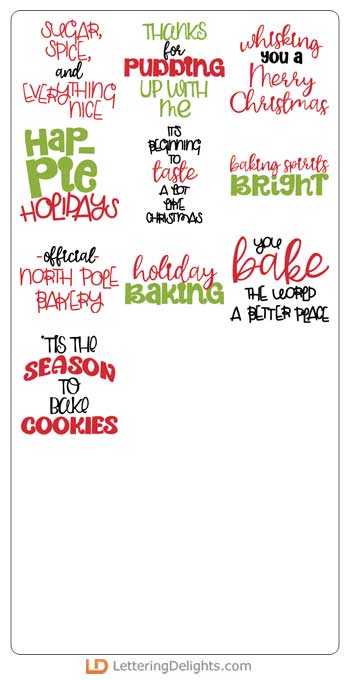 SUGAR,
SPICE,
and
EVERYTHING
NICE
THANKS
for
PUDDING
UP WITH
me
whisking
you a
Merry
Christmas
HAP-
PIE
HOLIDAYS
IT'S
BEGINNING
TO
taste
A LOT
LIKE
CHRISTMAS
baking spirits
BRIGHT
-official-
NORTH POLE
BAKERY
holiday
BAKING
you
bake
THE WORLD
A BETTER PLACE
'TIS THE
SEASON
TO
BAKE
COOKIES
LD LetteringDelights.com